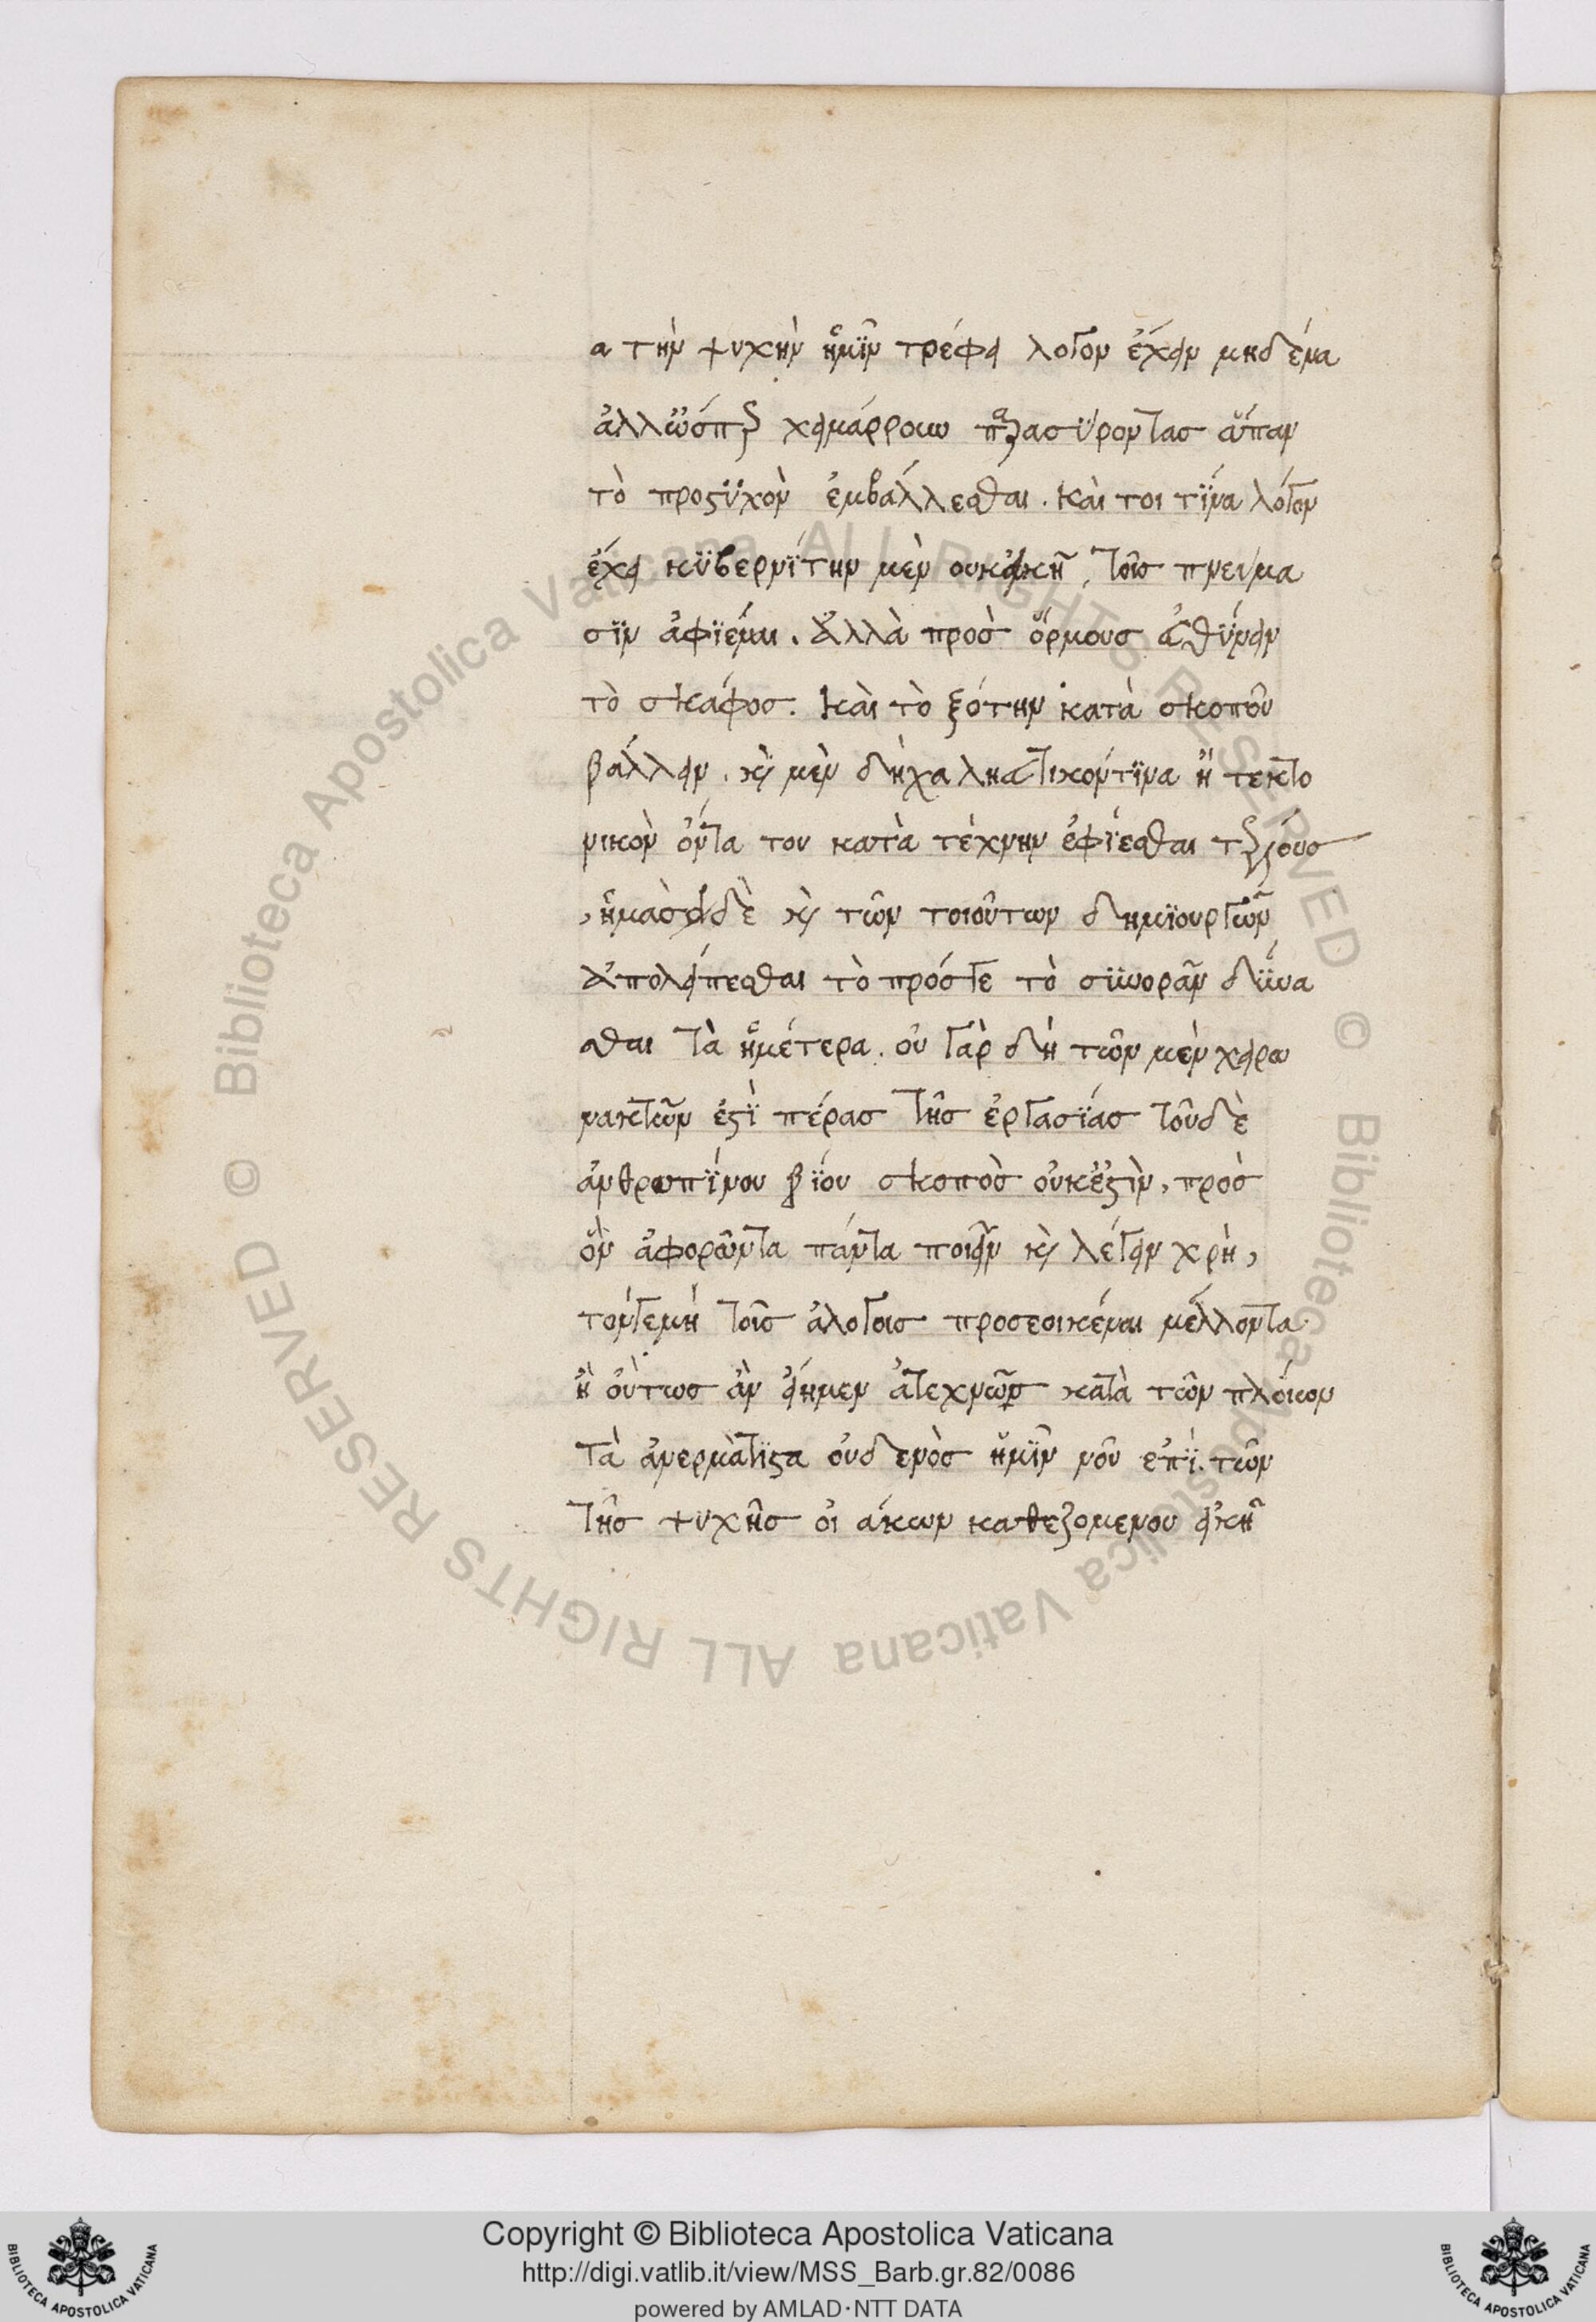 α τὴν ψυχὴν ἡμῖν τρέφει λόγον ἔχειν μηδένα
ἀλλ' ὥσπερ χειμάρρουν παρασύροντας ἅπαν
τὸ προστυχὸν ἐμβάλλεσθαι. καὶ τοι τίνα λόγον
ἔχει κυβερνίτην μὲν οὐκ εἰκῆ, τοῖς πνεύμα
σιν ἀφιέναι. ἀλλὰ πρὸς ὅρμους εὐθύνειν
τὸ σκάφος. καὶ τοξότην κατὰ σκοποῦ
βάλλειν. καὶ μὲν δὴ χαλκευτικόν τινα ἢ τεκτο
νικὸν ὄντα του κατὰ τέχνην ἐφίεσθαι τέλους
, ἡμᾶς δὲ καὶ τῶν τοιούτων δημιουργῶν
ἀπολείπεσθαι τὸ πρόσγε τὸ συνορᾶν δύνα
σθαι τὰ ἡμέτερα. οὐ γὰρ δὴ τῶν μὲν χειρω
νακτῶν ἐστὶ πέρας τῆς ἐργασίας τοῦ δὲ
ἀνθρωπίνου βίου σκοπὸς οὐκ ἔστιν, πρὸς
ὃν ἀφορῶντα πάντα ποιεῖν καὶ λέγειν χρὴ,
τόν γε μὴ τοῖς ἀλόγοις προσεοικέναι μέλλοντα
ἢ οὕτως ἂν εἴημεν ἀτεχνῶς κατὰ τῶν πλοίων
τὰ ἀνερμάτιστα οὐδενὸς ἡμῖν νοῦ ἐπὶ τῶν
τῆς ψυχῆς οἰάκων καθεζομένου εἰκῆ
Copyright © Biblioteca Apostolica Vaticana
http://digi.vatlib.it/view/MSS_Barb.gr.82/0086
powered by AMLAD·NTT DATA